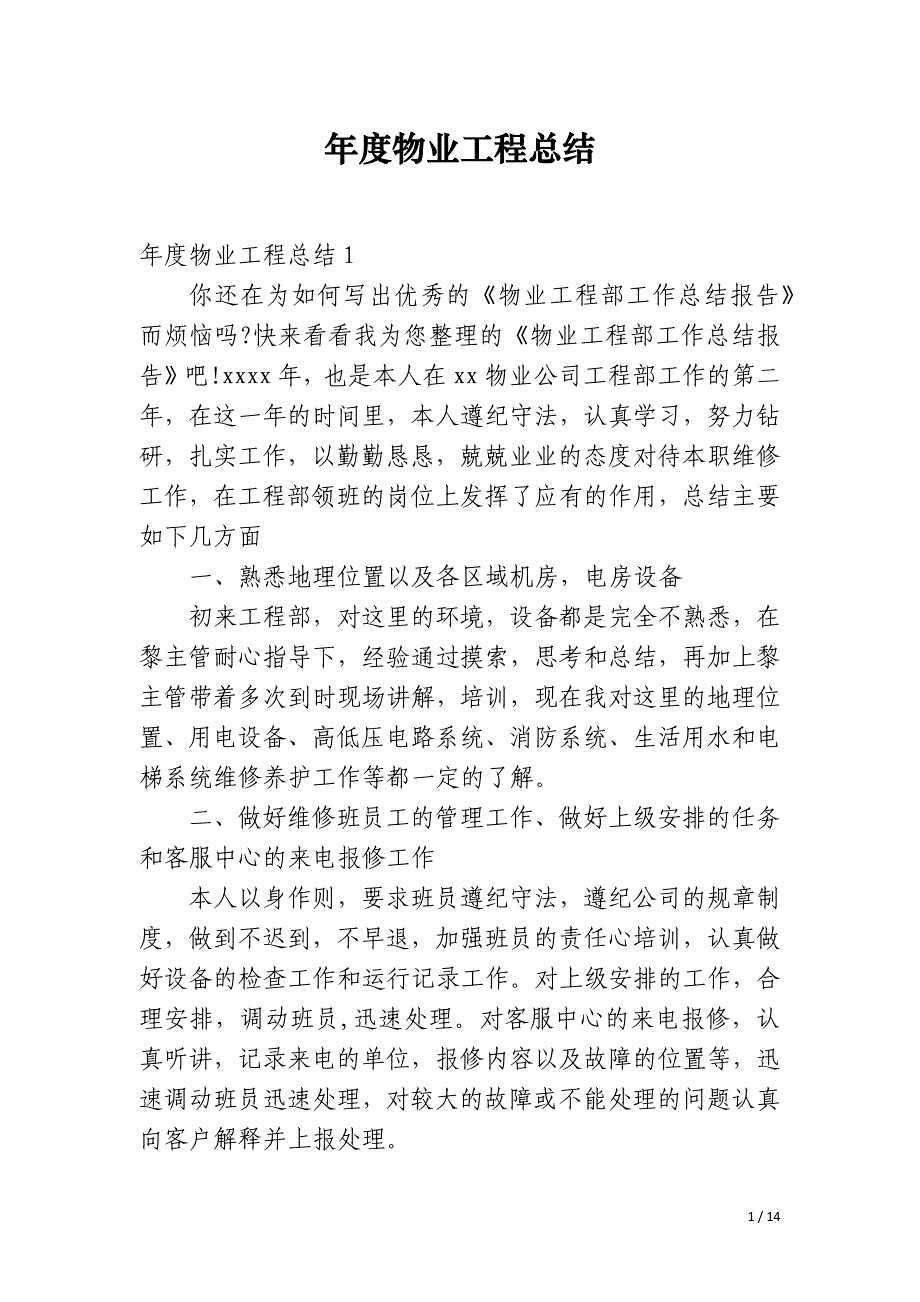 年度物业工程总结
年度物业工程总结 1
你还在为如何写出优秀的《物业工程部工作总结报告》
而烦恼吗?快来看看我为您整理的《物业工程部工作总结报
告》吧!xxxx 年，也是本人在 xx 物业公司工程部工作的第二
年，在这一年的时间里，本人遵纪守法，认真学习，努力钻
研，扎实工作，以勤勤恳恳，兢兢业业的态度对待本职维修
工作，在工程部领班的岗位上发挥了应有的作用，总结主要
如下几方面
一、熟悉地理位置以及各区域机房，电房设备
初来工程部，对这里的环境，设备都是完全不熟悉，在
黎主管耐心指导下，经验通过摸索，思考和总结，再加上黎
主管带着多次到时现场讲解，培训，现在我对这里的地理位
置、用电设备、高低压电路系统、消防系统、生活用水和电
梯系统维修养护工作等都一定的了解。
二、做好维修班员工的管理工作、做好上级安排的任务
和客服中心的来电报修工作
本人以身作则，要求班员遵纪守法，遵纪公司的规章制
度，做到不迟到，不早退，加强班员的责任心培训，认真做
好设备的检查工作和运行记录工作。对上级安排的工作，合
理安排，调动班员,迅速处理。对客服中心的来电报修，认
真听讲，记录来电的单位，报修内容以及故障的位置等，迅
速调动班员迅速处理，对较大的故障或不能处理的问题认真
向客户解释并上报处理。
1 / 14